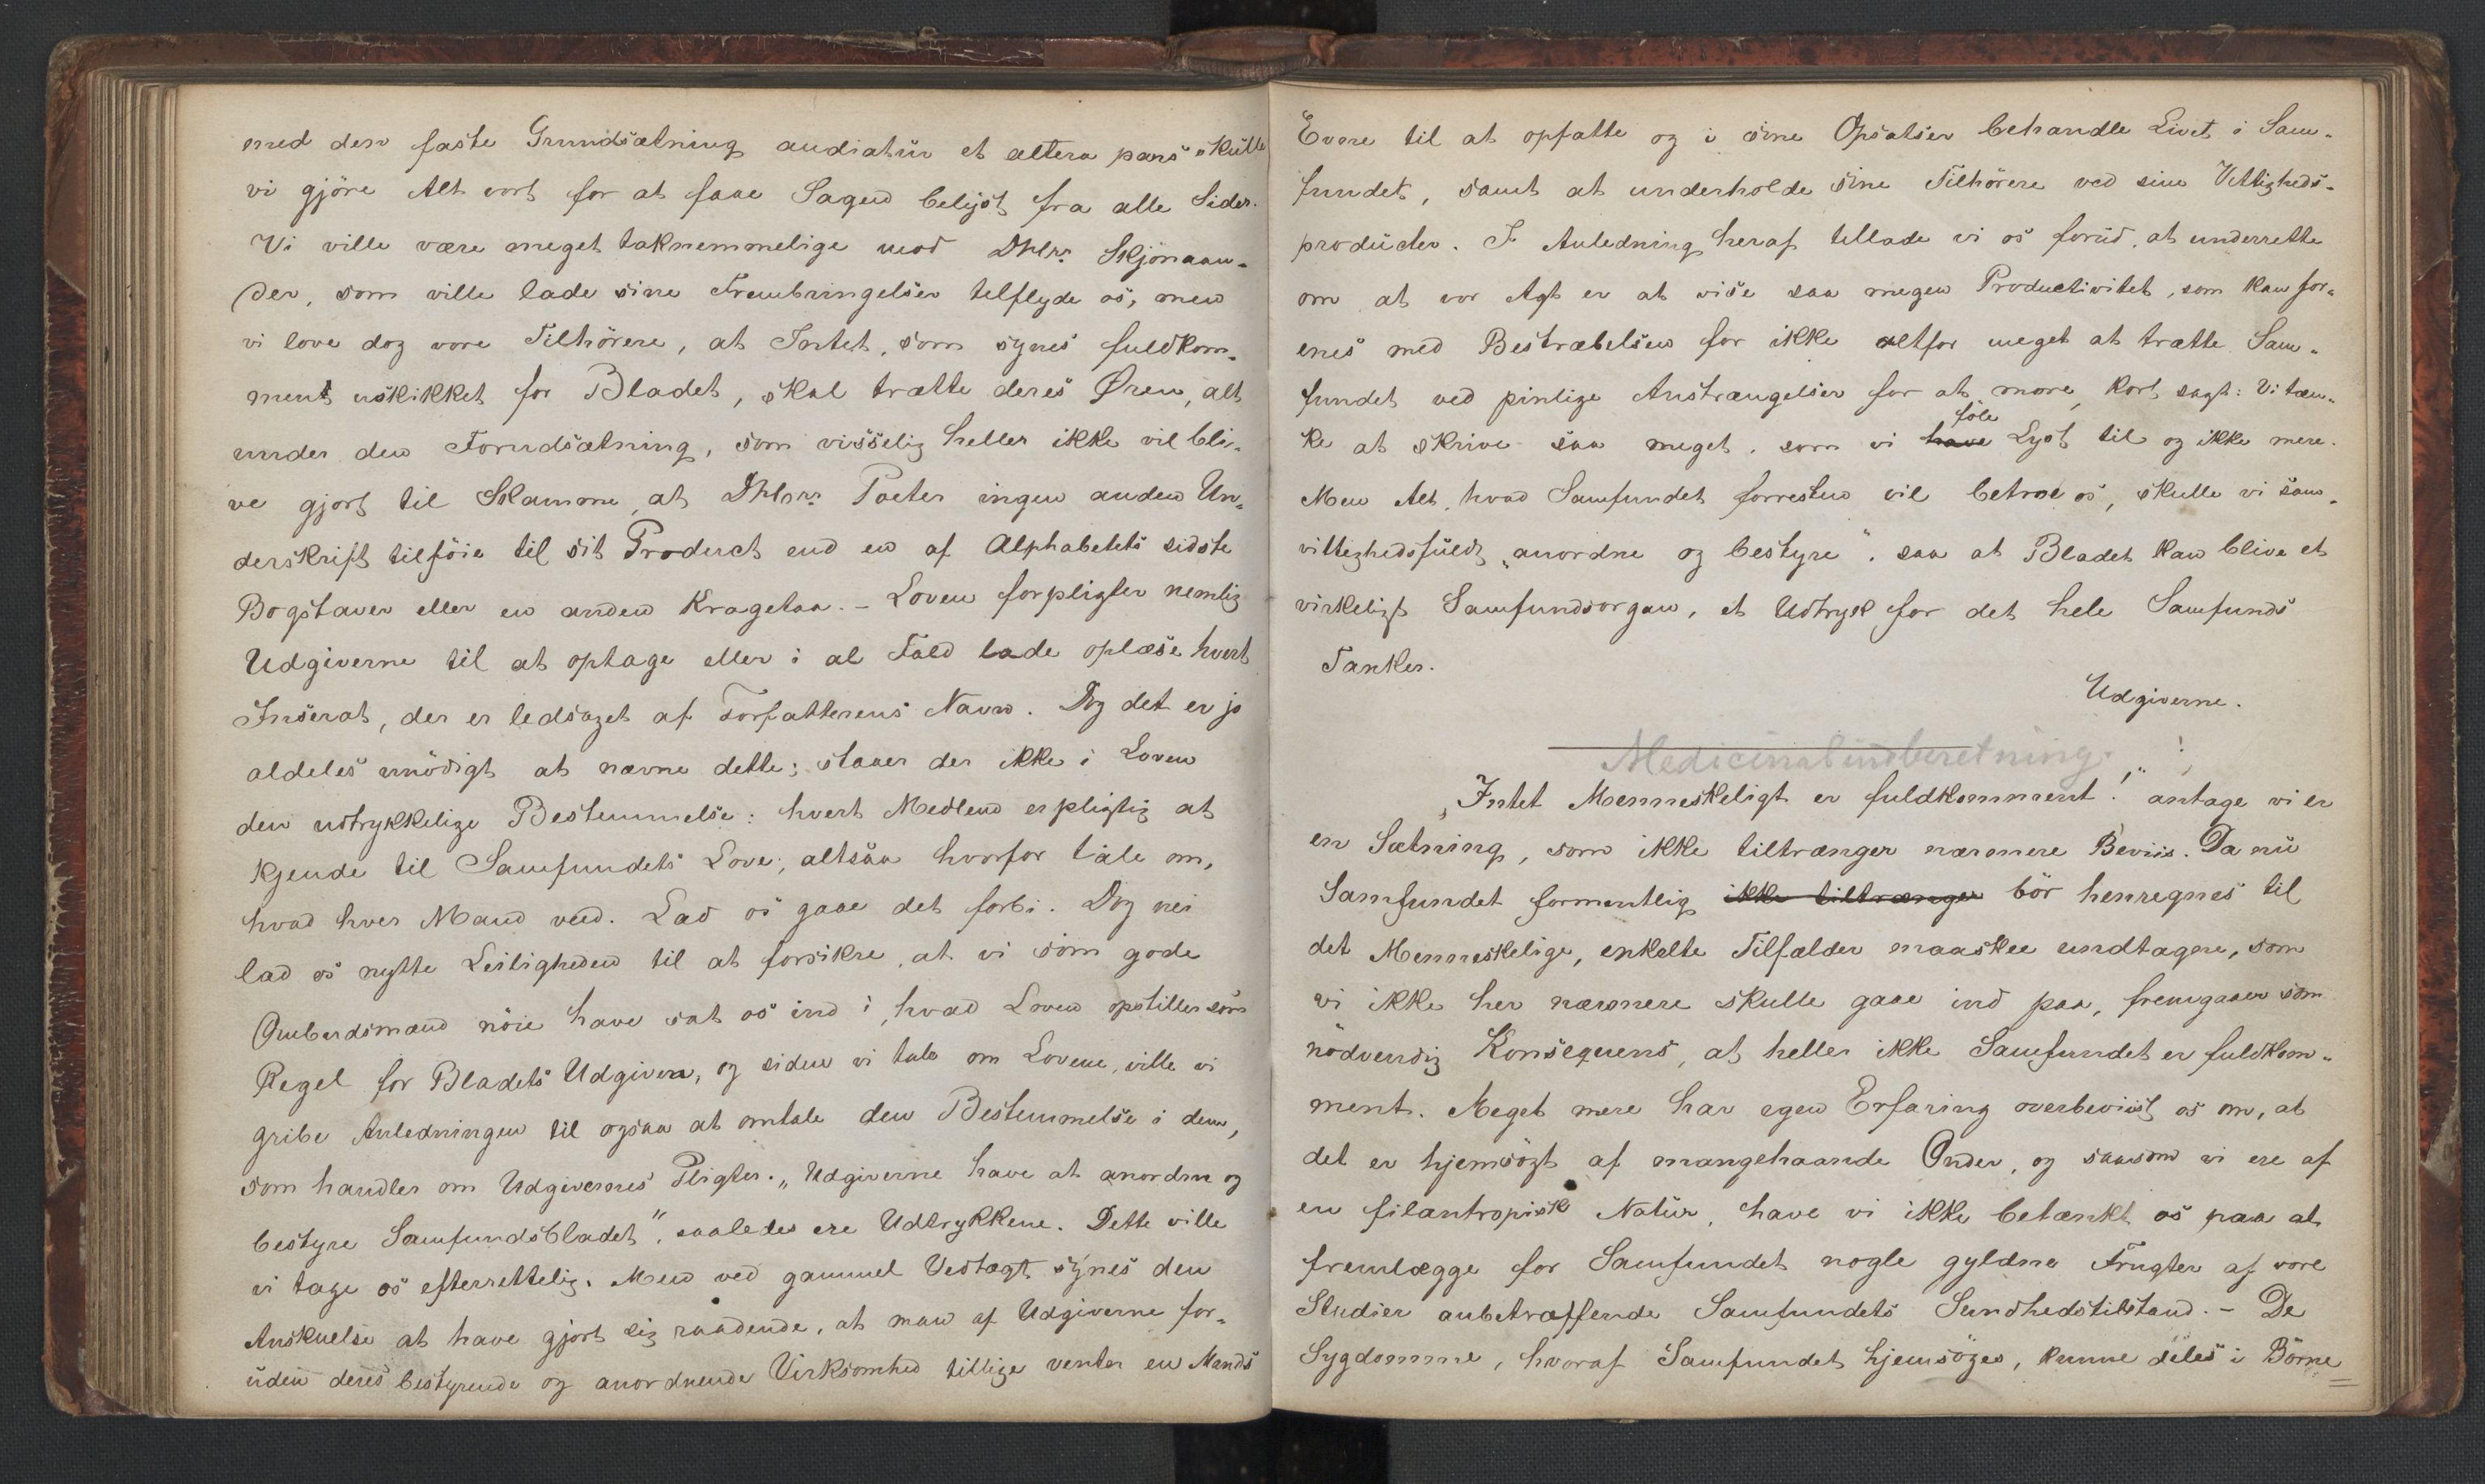 med den faste Grundsætning audiatur et altera pars skulle
vi gjöre Alt vort for at faae Sagen belyst fra alle Sider.
Vi ville være meget taknemmelige mod DHlrr. Skjönaan-
der, som ville lade sine Frembringelser tilflyde os, men
vi love dog vore Tilhörere, at Intet, som synes fuldkom-
ment uskikket for Bladet, skal trætte deres Øren, alt
under den Forudsætning, som visselig heller ikke vil bli-
ve gjort til Skamme, at DHlrr. Poeter ingen anden Un-
derskrift tilföie til sit Product end en af Alphabetets sidste
Bogstaver eller en anden Kragetaa. - Loven forpligter nemlig
Udgiverne til at optage eller i al Fald lade oplæse hvert
Inserat, der er ledsaget af Forfatterens Navn. Dog det er jo
aldeles unödigt at nævne dette; staaer der ikke i Loven
den udtrykkelige Bestemmelse: hvert Medlem er pligtig at
kjende til Samfundets Love; altsaa hvorfor tale om,
hvad hver Mand veed. Lad os gaae det forbi. Dog nei
lad os nytte Leiligheden til at forsikre, at vi som gode
Ombudsmænd nöie have sat os ind i, hvad Loven opstiller som
Regel for Bladets Udgivere, og siden vi tale om Lovene, ville vi
gribe Anledningen til ogsaa at omtale den Bestemmelse i dem,
som handler om Udgivernes Pligter. „Udgiverne have at anordne og
bestyre Samfundsbladet", saaledes ere Udtrykkene. Dette ville
vi tage os efterrettelig. Men ved gammel Vedtægt synes den
Anskuelse at have gjort sig raadende, at man af Udgiverne for-
uden deres bestyrende og anordnende Virksomhed tillige venter en Mands
Evne til at opfatte og i sine Opsatser behandle Livet i Sam-
fundet, samt at underholde sine Tilhörere ved sine Vittigheds-
producter. I Anledning heraf tillade vi os forud at underrette
om at vor Agt er at vise saa megen Productivitet, som kan for-
enes med Bestræbelsen for ikke altfor meget at trætte Sam-
fundet ved pinlige Anstrængelser for at more, kort sagt: Vi tæn-
föle
ke at skrive saa meget, som vi have Lyst til og ikke mere.
Men Alt, hvad Samfundet forresten vil betroe os, skulle vi sam-
vittighedsfuldt „anordne og bestyre", saa at Bladet kan blive et
virkeligt Samfundsorgan, et Udtryk for det hele Samfunds
Tanker.
Udgiverne.
Medicinalindberetning.
„Intet Menneskeligt er fuldkomment!" antage vi er
en Sætning, som ikke tiltrænger nærmere Beviis. Da nu
Samfundet formentlig ikke tiltrænger bör henregnes til
det Menneskelige, enkelte Tilfælder maaskee undtagne, som
vi ikke her nærmere skulle gaae ind paa, fremgaaer som
nödvendig Konsequens, at heller ikke Samfundet er fuldkom-
ment. Meget mere har egen Erfaring overbeviist os om, at
det er hjemsögt af mangehaande Onder, og saasom vi ere af
en filantropisk Natur, have vi ikke betænkt os paa at
fremlægge for Samfundet nogle gyldne Frugter af vore
Studier anbetræffende Samfundets Sundhedstilstand. - De
Sygdomme, hvoraf Samfundet hjemsöges, kunne deles i Börne